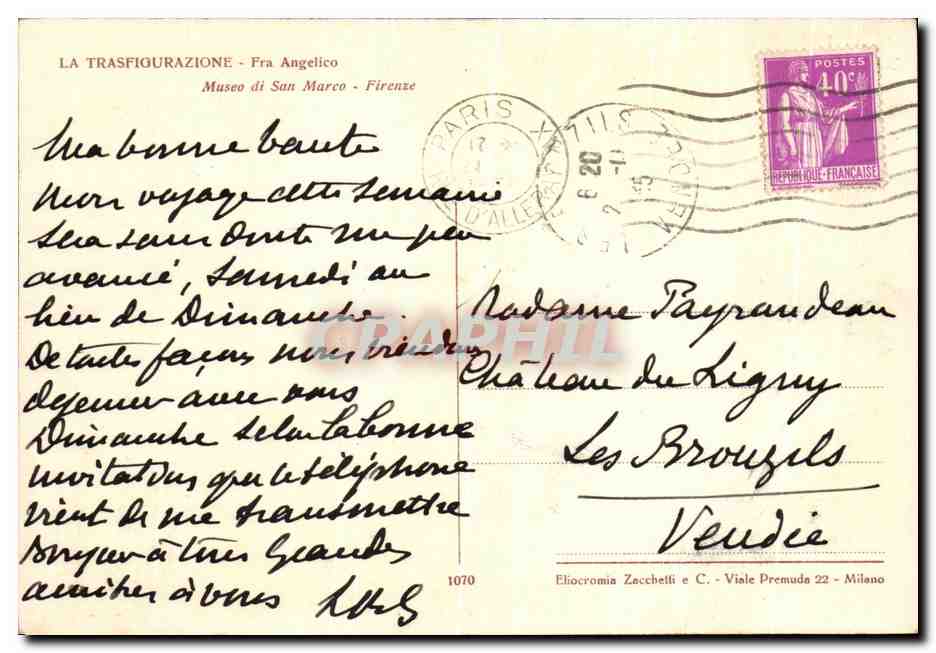 LA TRASFIGURAZIONE - Fra Angelico
Museo di San Marco - Firenze
Ma bonne tante
Mon voyage cette semaine
sera sans doute un peu
avancé, Samedi au
lieu de Dimanche.
De toutes façons nous viendrons
dejeuner avec vous
Dimanche selon la bonne
invitation que le téléphone
vient de me transmettre
Bonjour à tous Grandes
amitiés à vous
PARIS XV
D'ALLERAY
POSTES
40c
REPUBLIQUE-FRANÇAISE
Madame Payraudeau
Château du Ligny
Les Brouzils
Vendée
CPAPHIL
1070
Eliocromia Zacchetti e C. - Viale Premuda 22 - Milano